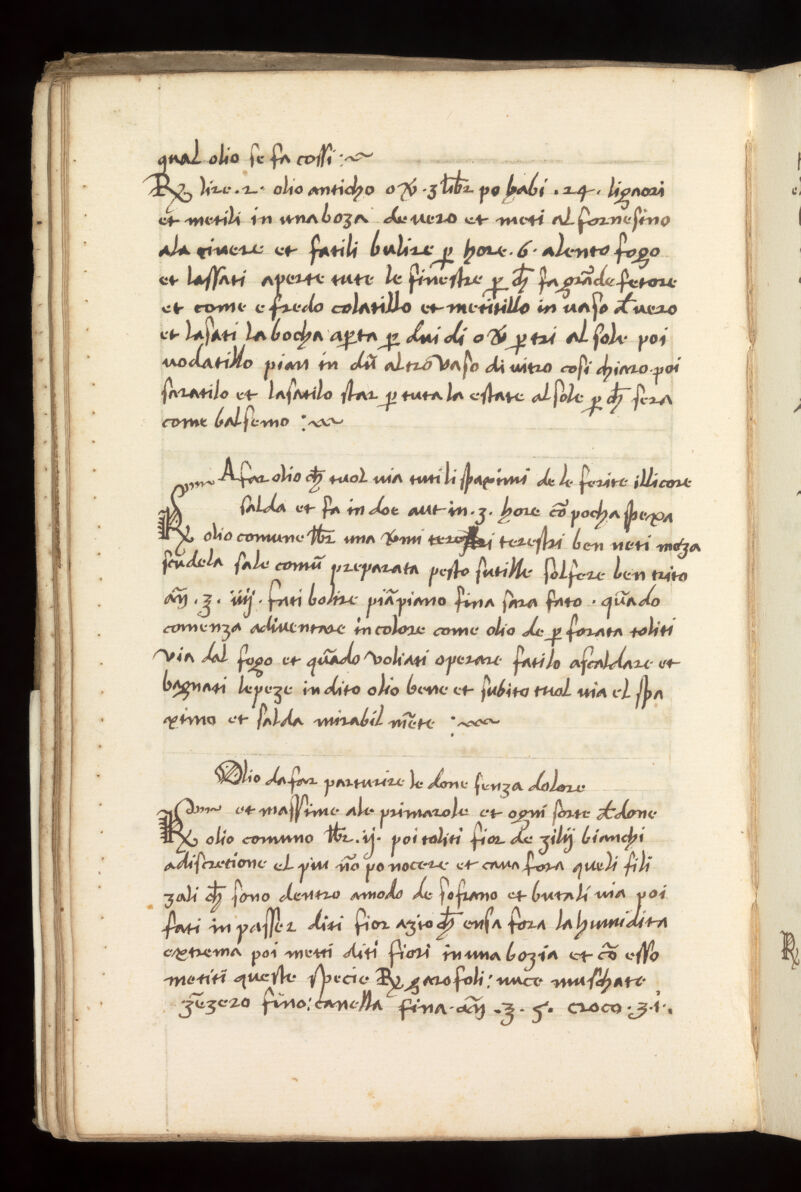 qual olio se fa cossi :~
℞ lire .2. olio anticho o ꝟ .3 libr po habi .24. ligaori
et metili in una boza de vero et meti al fornesino
ala civere et fatili bulire ꝑ hore .6. a lento fogo
et lassati aperte tute le finestre ꝑ ch̄ fa grāde fetore
et come e fredo colatillo et metitillo in vaso đ vero
et lasati la bocha aꝑta ꝑ dui di o ꝟ ꝑ tri al sole poi
vodatillo pian in altro vaso di vitro cosi chiaro poi
saratilo et lasatilo star ꝑ tuta la estate al sole ꝑ ch̄ sera
come balsemo :~
A far olio ch̄ tuol uia tuti li spaximi de le ferite illicore
salda et fa in doe aut in .3. hore cō pocha spexa
℞ olio comune libr una ꝟmi terestri ben neti meza
scudela sale comū preparata pesto sutille solfere ben trito
añ .ʒ. iiij. fati bolire piāpiano fina sara fato . quādo
comenza adiventare in colore come olio de ꝑforata toliti
via dal fogo et quādo voliati operare fatilo ascaldare et
bagnati le peze in dito olio bene et subito tuol uia el spa
ximo et salda mirabil mēte :~
Olio da far parturire le done senza dolore
et massime a le primarole et ogni sorte đ done
℞ olio comuno libr .ij. poi toliti fior de zilij bianchi
a discretione el piu nō po nocere et cava fora queli fili
zali ch̄ sono dentro a modo de sofrano et butali uia poi
fati in passer diti fior azio ch̄ ensa fora la humidita
extrema poi metti diti fiori in una bozia et cō esso
metiti queste specie ℞ garofoli : nuce muschate
zēzero fino : canella fina . añ .ʒ. 5. croco .ʒ.i.
℞